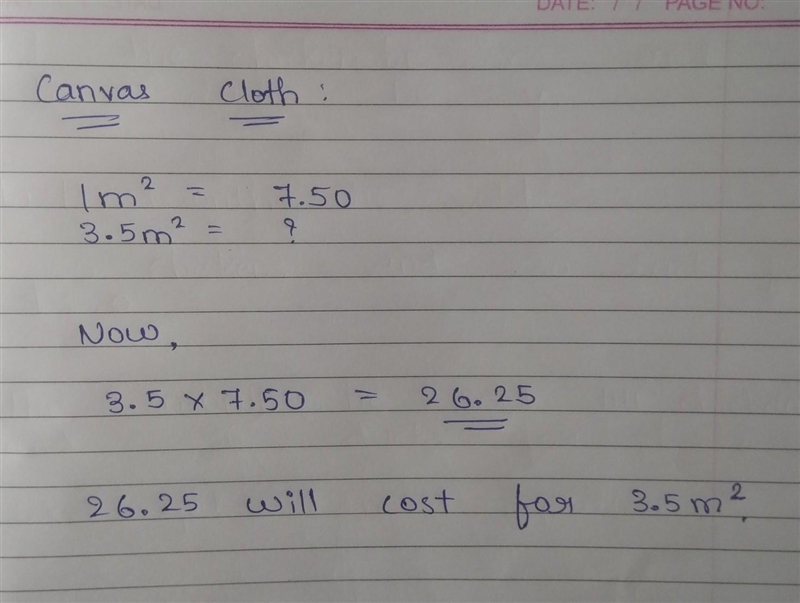 DATE: / / PAGE NO:
Canvas Cloth:
1m² = 7.50
3.5m² = ?
Now,
3.5 × 7.50 = 26.25
26.25 will cost for 3.5m².